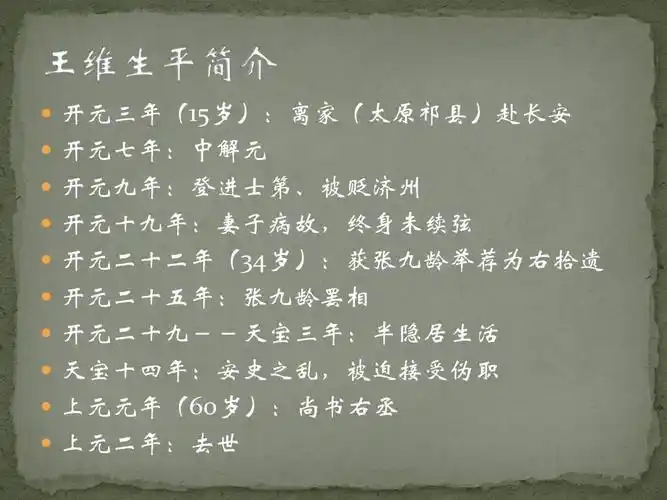 王维生平简介
开元三年（15岁）：离家（太原祁县）赴长安
开元七年：中解元
开元九年：登进士第、被贬济州
开元十九年：妻子病故，终身未续弦
开元二十二年（34岁）：获张九龄举荐为右拾遗
开元二十五年：张九龄罢相
开元二十九－－天宝三年：半隐居生活
天宝十四年：安史之乱，被迫接受伪职
上元元年（60岁）：尚书右丞
上元二年：去世